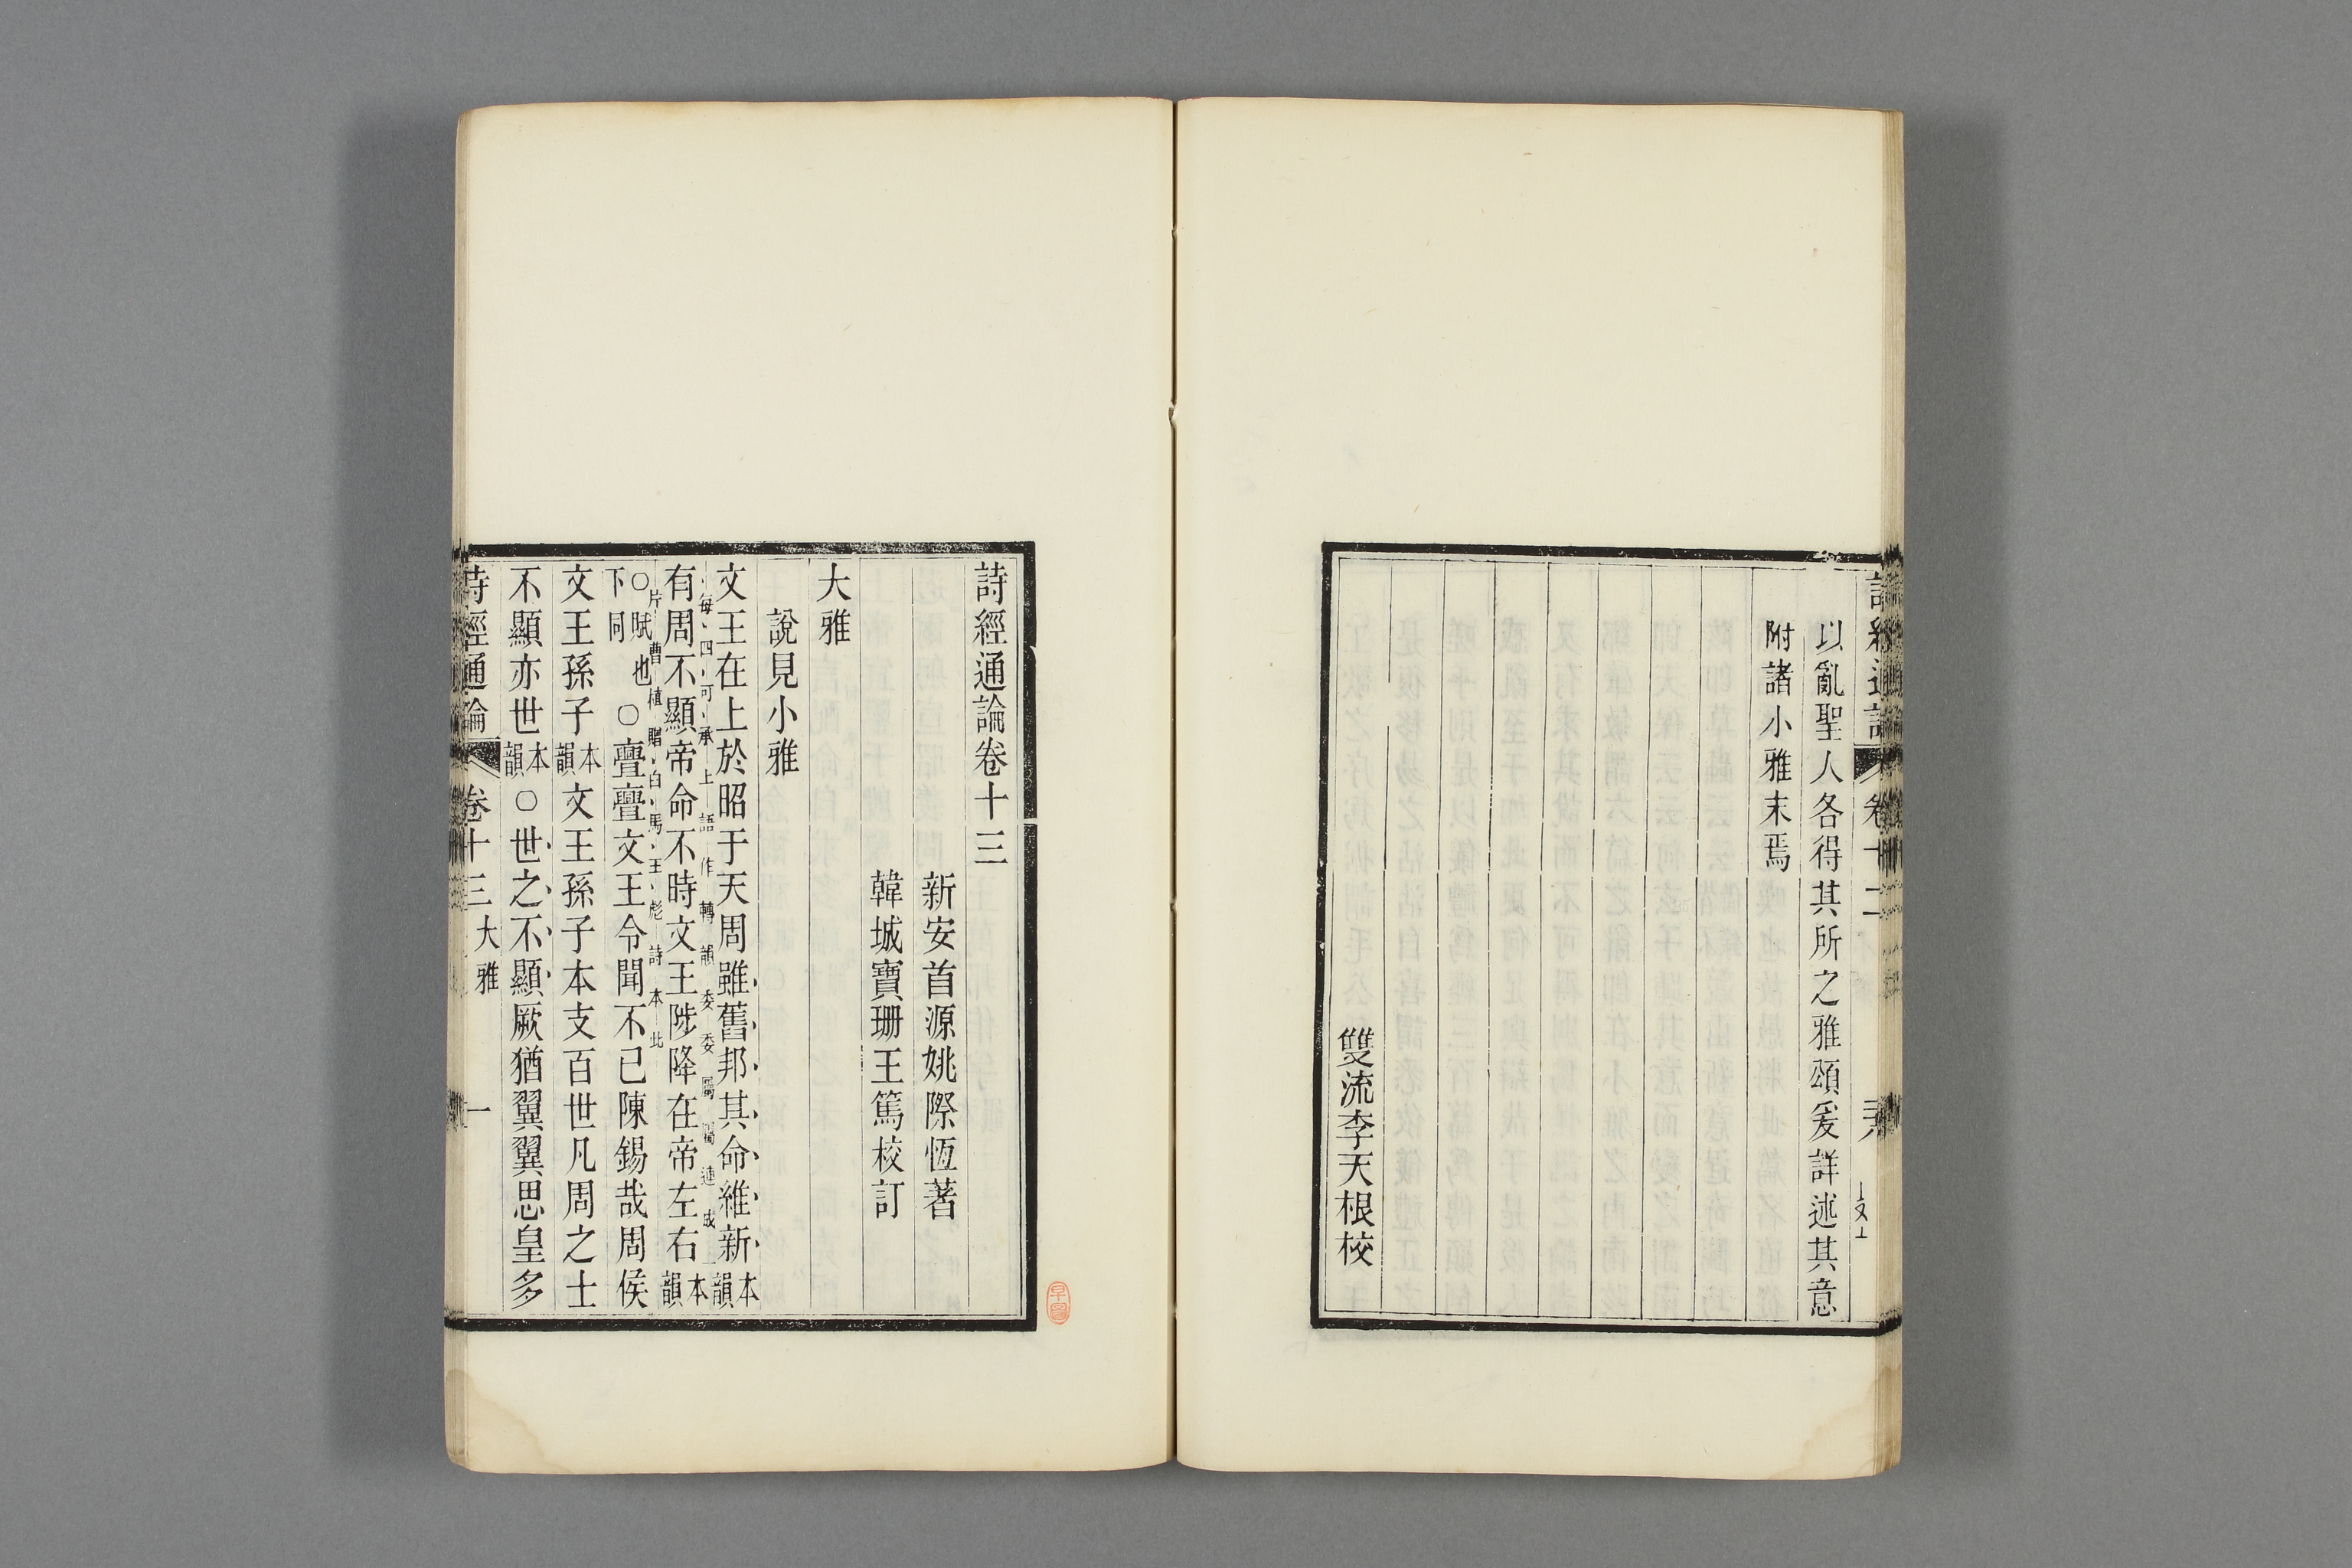 以亂聖人各得其所之雅頌爰詳述其意
附諸小雅末焉
雙流李天根校
詩經通論卷十三
新安首源姚際恆著
韓城寶珊王篤校訂
大雅
說見小雅
文王在上於昭于天周雖舊邦其命維新本韻
每四句承上語作轉韻委委屬屬連成
有周不顯帝命不時文王陟降在帝左右本韻
片曹植贈白馬王彪詩本此
○賦也下同○亹亹文王令聞不已陳錫哉周侯
文王孫子本韻文王孫子本支百世凡周之士
不顯亦世本韻○世之不顯厥猶翼翼思皇多
詩經通論 卷十三 大雅 一